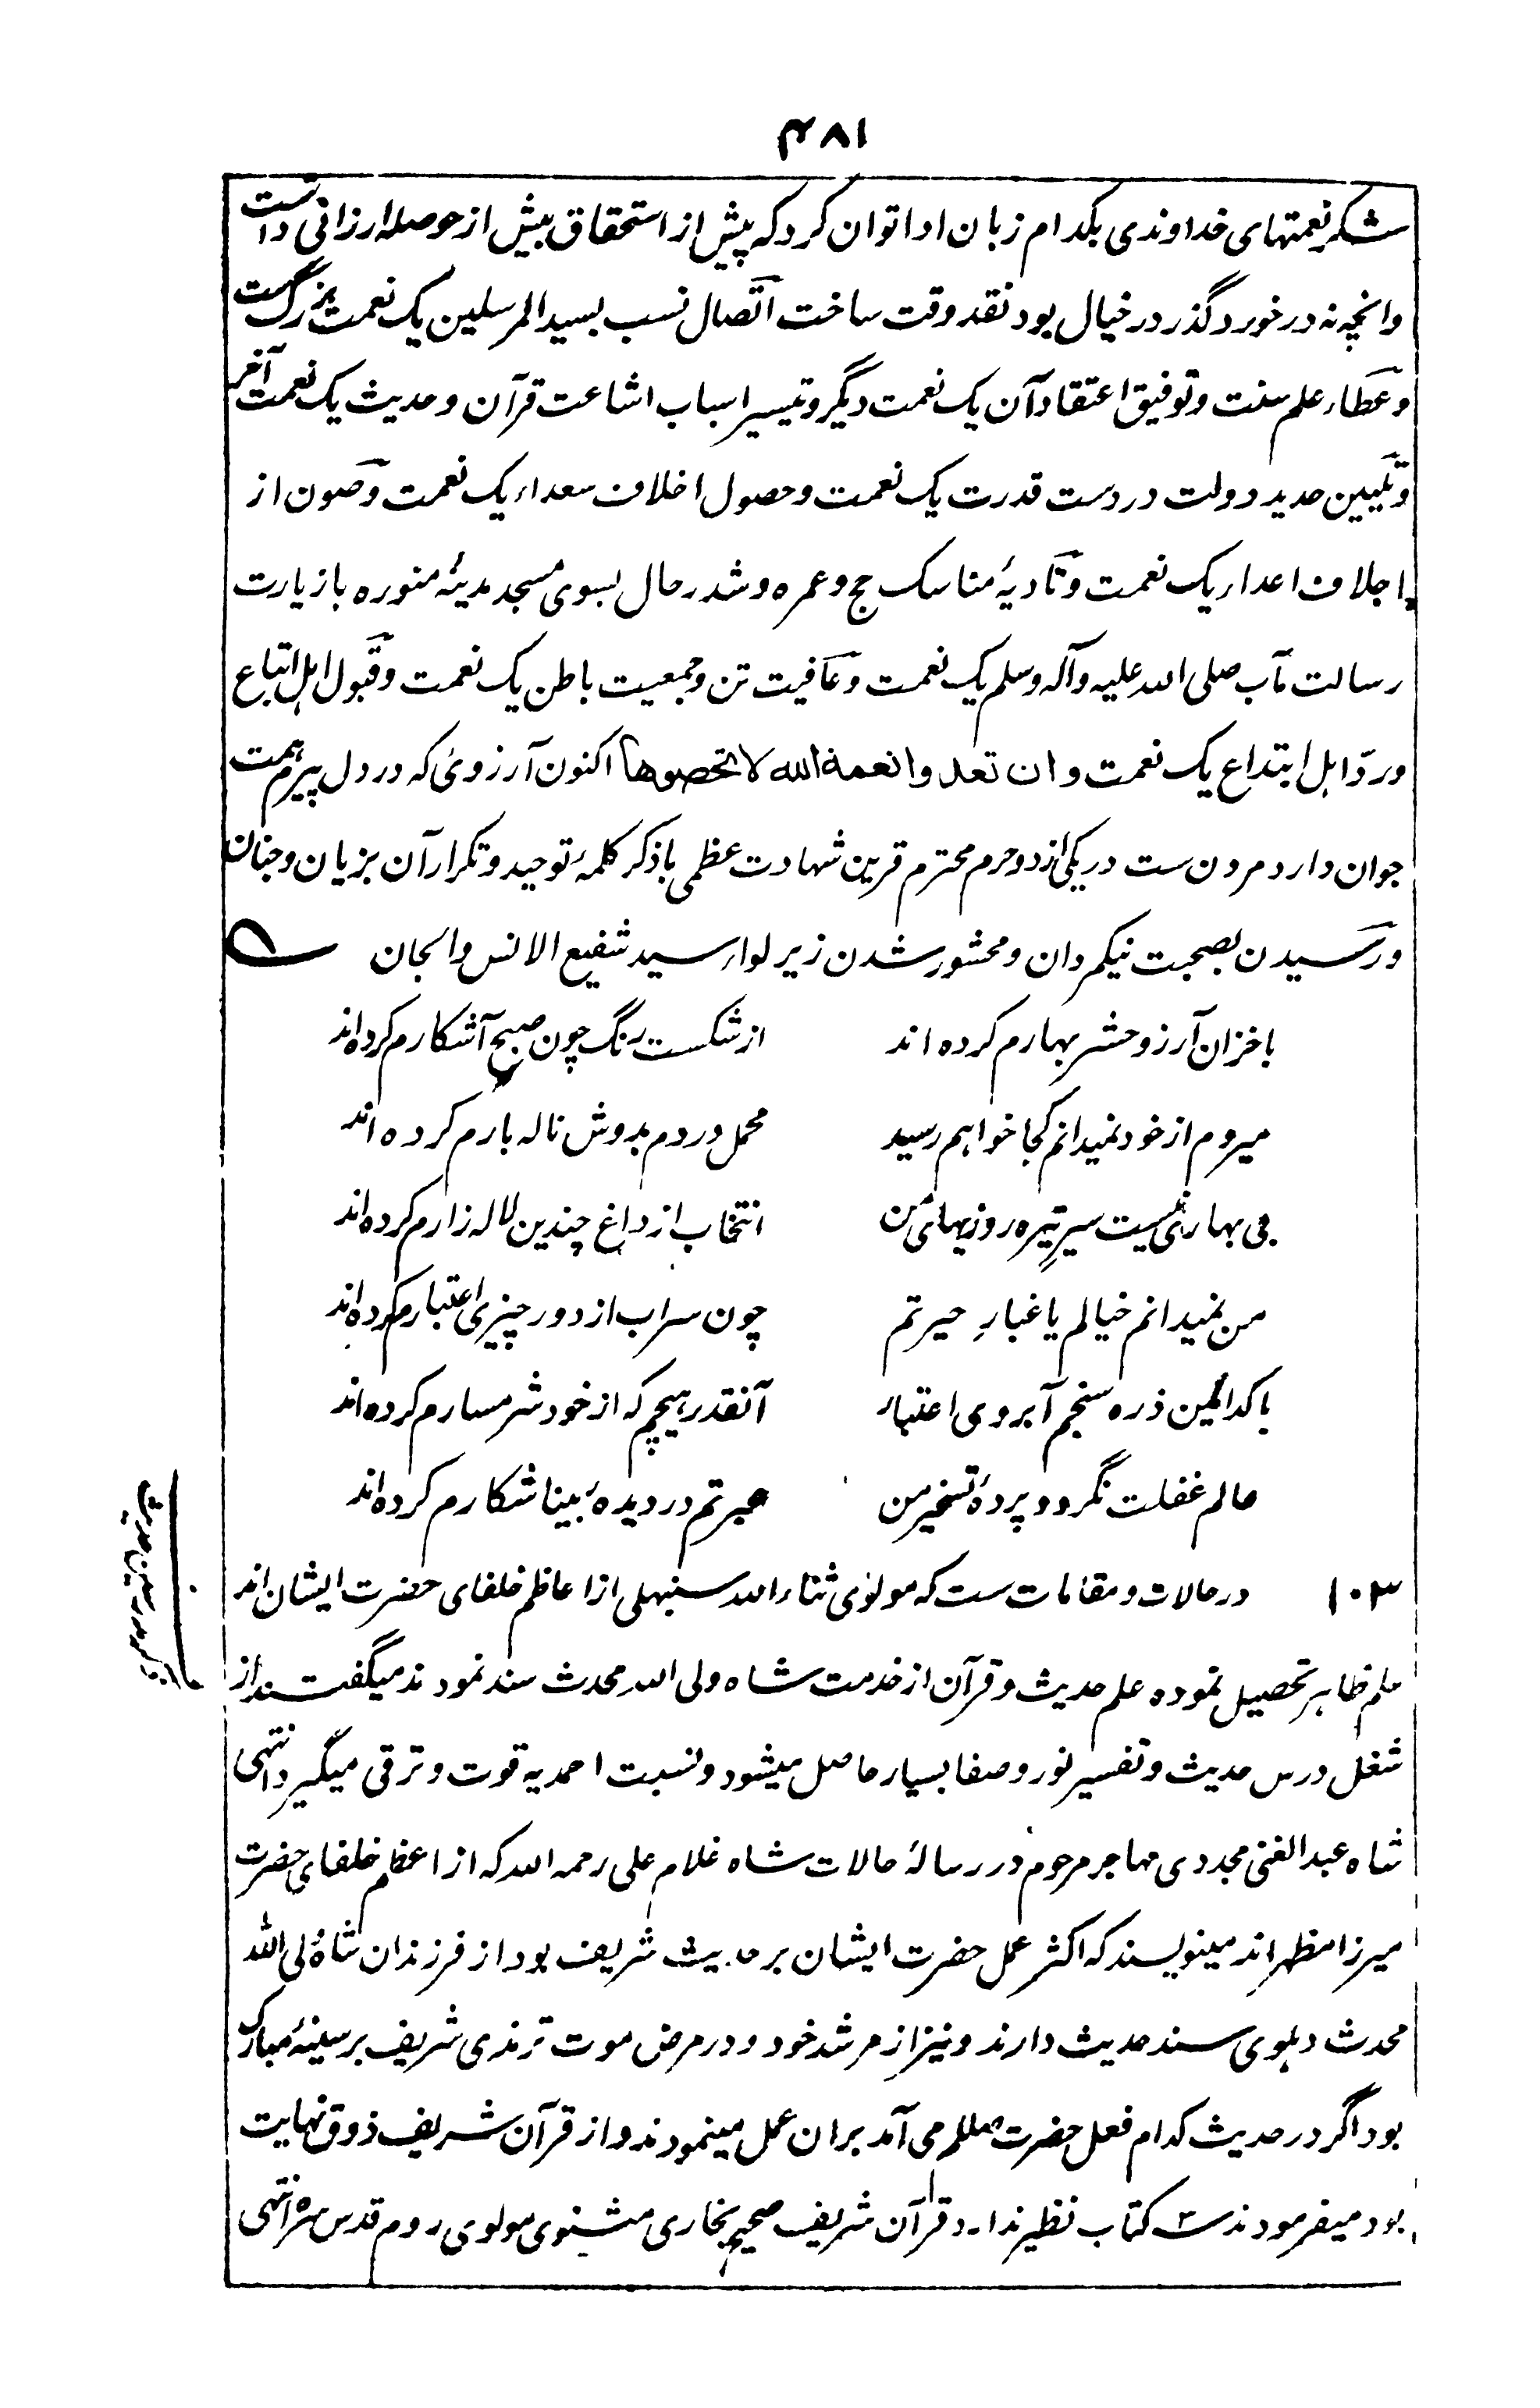 ۴۸۱
شکر نعمتهای خداوندی بکدام زبان ادا توان کرد که پیش از استحقاق بیش از حوصله ارزانی داشت
وانچه نه در خورد گذر در خیال بود نقد وقت ساخت اتصال نسب بسید المرسلین یک نعمت بزرگ ست
و عطاء علم سنت و توفیق اعتقاد آن یک نعمت دیگر و تیسیر اسباب اشاعت قرآن و حدیث یک نعمت آخر
و تلیین حدید دولت در دست قدرت یک نعمت و حصول اخلاف سعداء یک نعمت و صون از
اجلاف اعداء یک نعمت و تادیۂ مناسک حج و عمره و شد رحال بسوی مسجد مدینۂ منوره با زیارت
رسالت مآب صلی الله علیه وآله وسلم یک نعمت و عافیت تن و جمعیت باطن یک نعمت و قبول اهل اتباع
و ردّ اهل ابتداع یک نعمت و ان تعدوا نعمة الله لا تحصوها اکنون آرزوئ که در دل پیرم همت
جوان دارد مردن ست در یکی از دو حرم محترم قرین شهادت عظمی با ذکر کلمۂ توحید و تکرار آن بزبان و جنان
و رسیدن بصحبت نیکمردان و محشور شدن زیر لواء سید شفیع الانس والجان
با خزان آرزو حشر بهارم کرده اند از شکست رنگ چون صبح آشکارم کرده اند
میروم از خود نمیدانم کجا خواهم رسید محمل دردم بدوش ناله بارم کرده اند
بی بهاری نیست سیر تیره روزیهای من انتخاب از داغ چندین لاله زارم کرده اند
من نمیدانم خیالم یا غبارِ حیرتم چون سراب از دور چیزی اعتبارم کرده اند
با کدامین ذره سنجم آبروی اعتبار آنقدر هیچم که از خود شرمسارم کرده اند
عالم غفلت نگردد پردۂ تسخیر من عبرتم در دیدۂ بینا شکارم کرده اند
۱۰۳ در حالات و مقامات ست که مولوی ثناء الله سنبهلی از اعاظم خلفای حضرت ایشان اند
علم ظاهر تحصیل نموده علم حدیث و قرآن از خدمت شاه ولی الله محدث سند نمودند میگفتند از
شغل درس حدیث و تفسیر نور و صفا بسیار حاصل میشود و نسبت احمدیه قوت و ترقی میگیرد انتهی
شاه عبد الغنی مجددی مهاجر مرحوم در رسالۂ حالات شاه غلام علی رحمه الله که از اعظم خلفای حضرت
میرزا مظهر اند مینویسند که اکثر عمل حضرت ایشان بر حدیث شریف بود از فرزندان شاه ولی الله
محدث دهلوی سند حدیث دارند و نیز از مرشد خود و در مرض موت ترمذی شریف بر سینۂ مبارک
بود اگر در حدیث کدام فعل حضرت صللم می آمد بران عمل مینمودند و از قرآن شریف ذوق نهایت
بود میفرمودند سه کتاب نظیر ندارد قرآن شریف صحیح بخاری مثنوی مولوی روم قدس سره انتهی